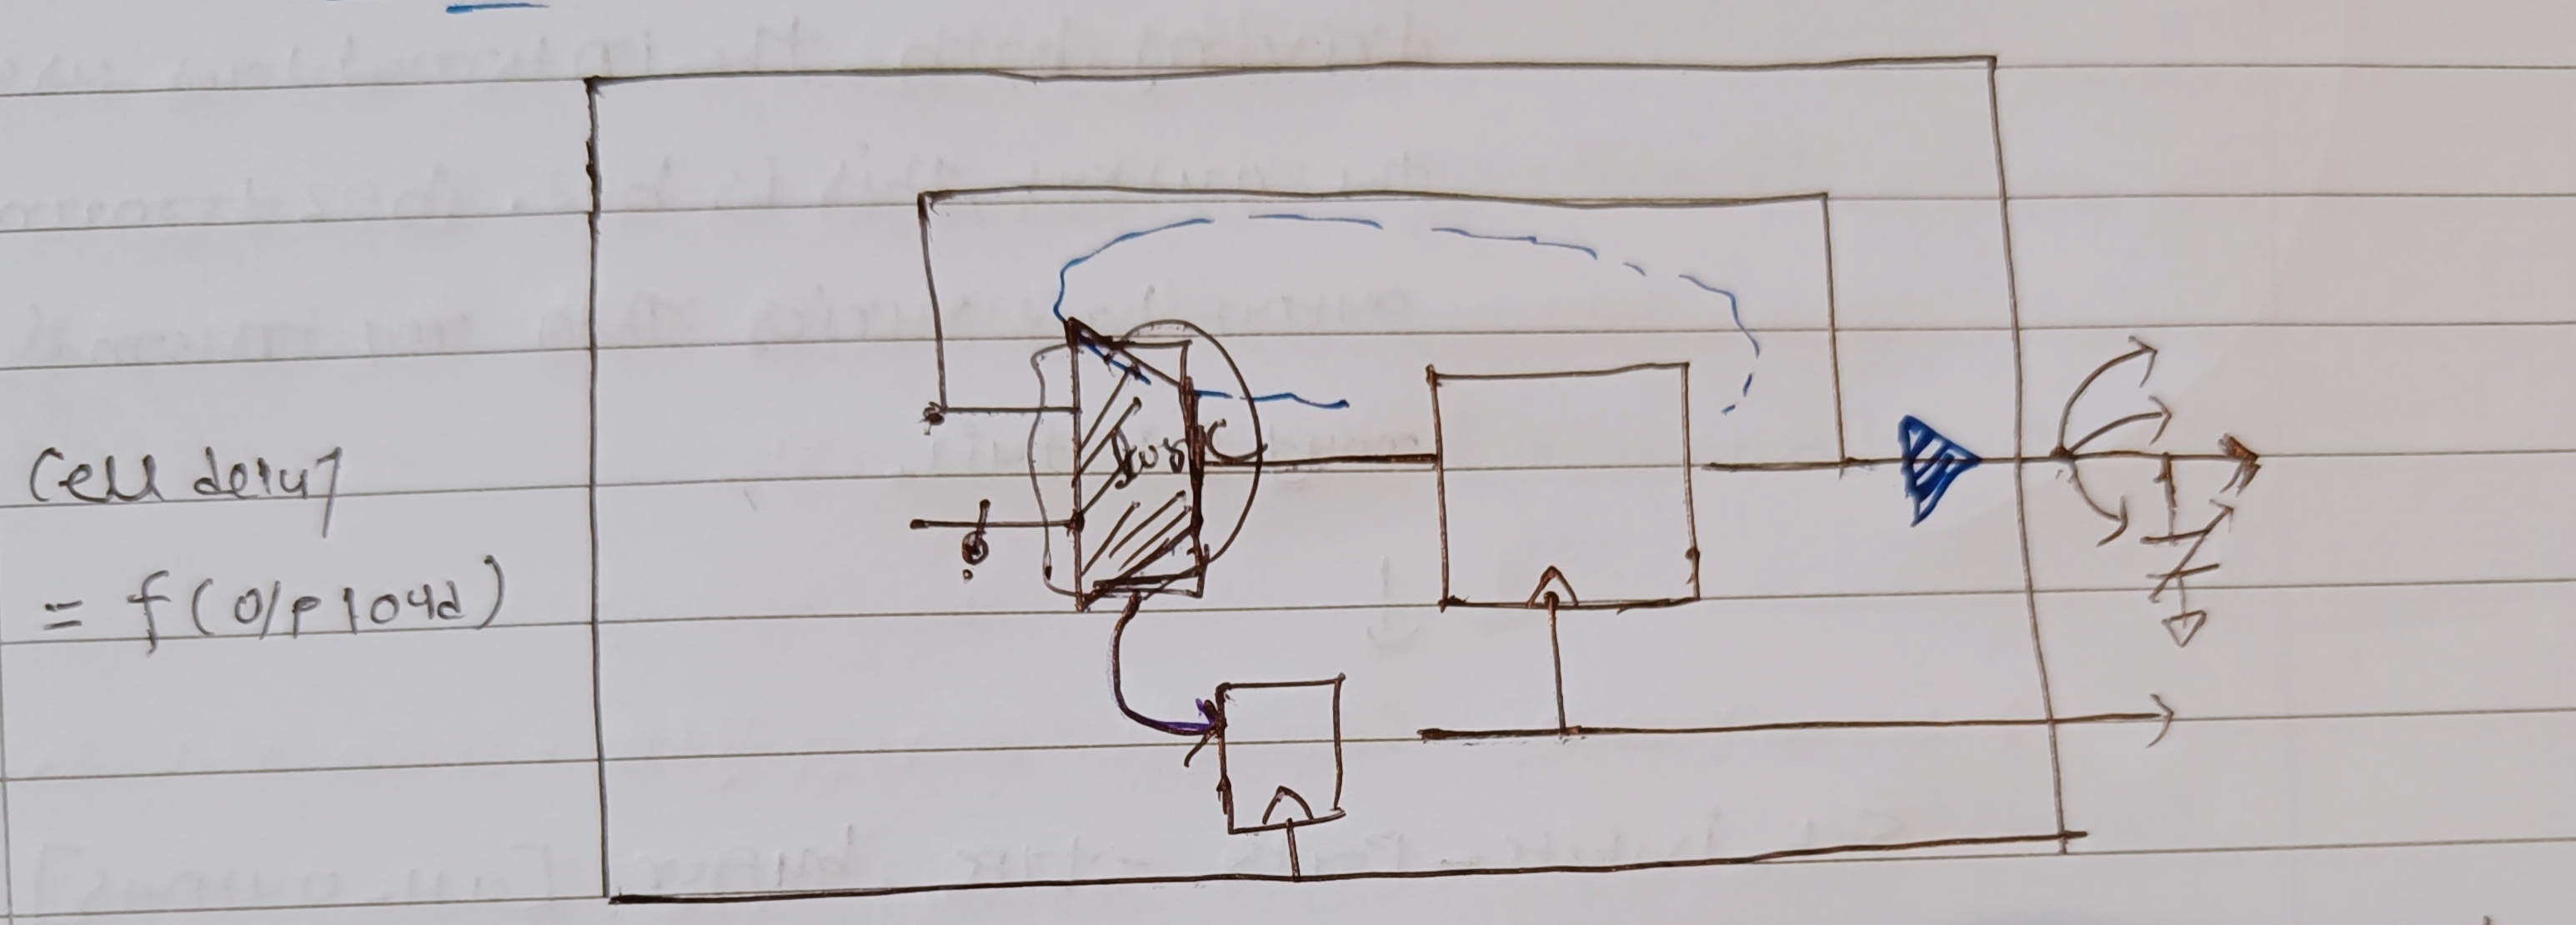 Cell delay
= f(O/P load)
Logic